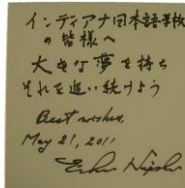 インディアナ日本語学校
の皆様へ
大きな夢を持ち
それを追い続けよう
Best wishes,
May 21, 2011